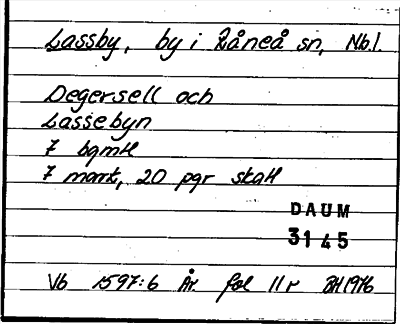 Lassby, by i Råneå sn, Nb.l.
Degersell och
Lassebyn
7 bgmtl
7 mark, 20 pgr skatt
DAUM
3145
Vb 1597:6 År fol 11r BH 1976